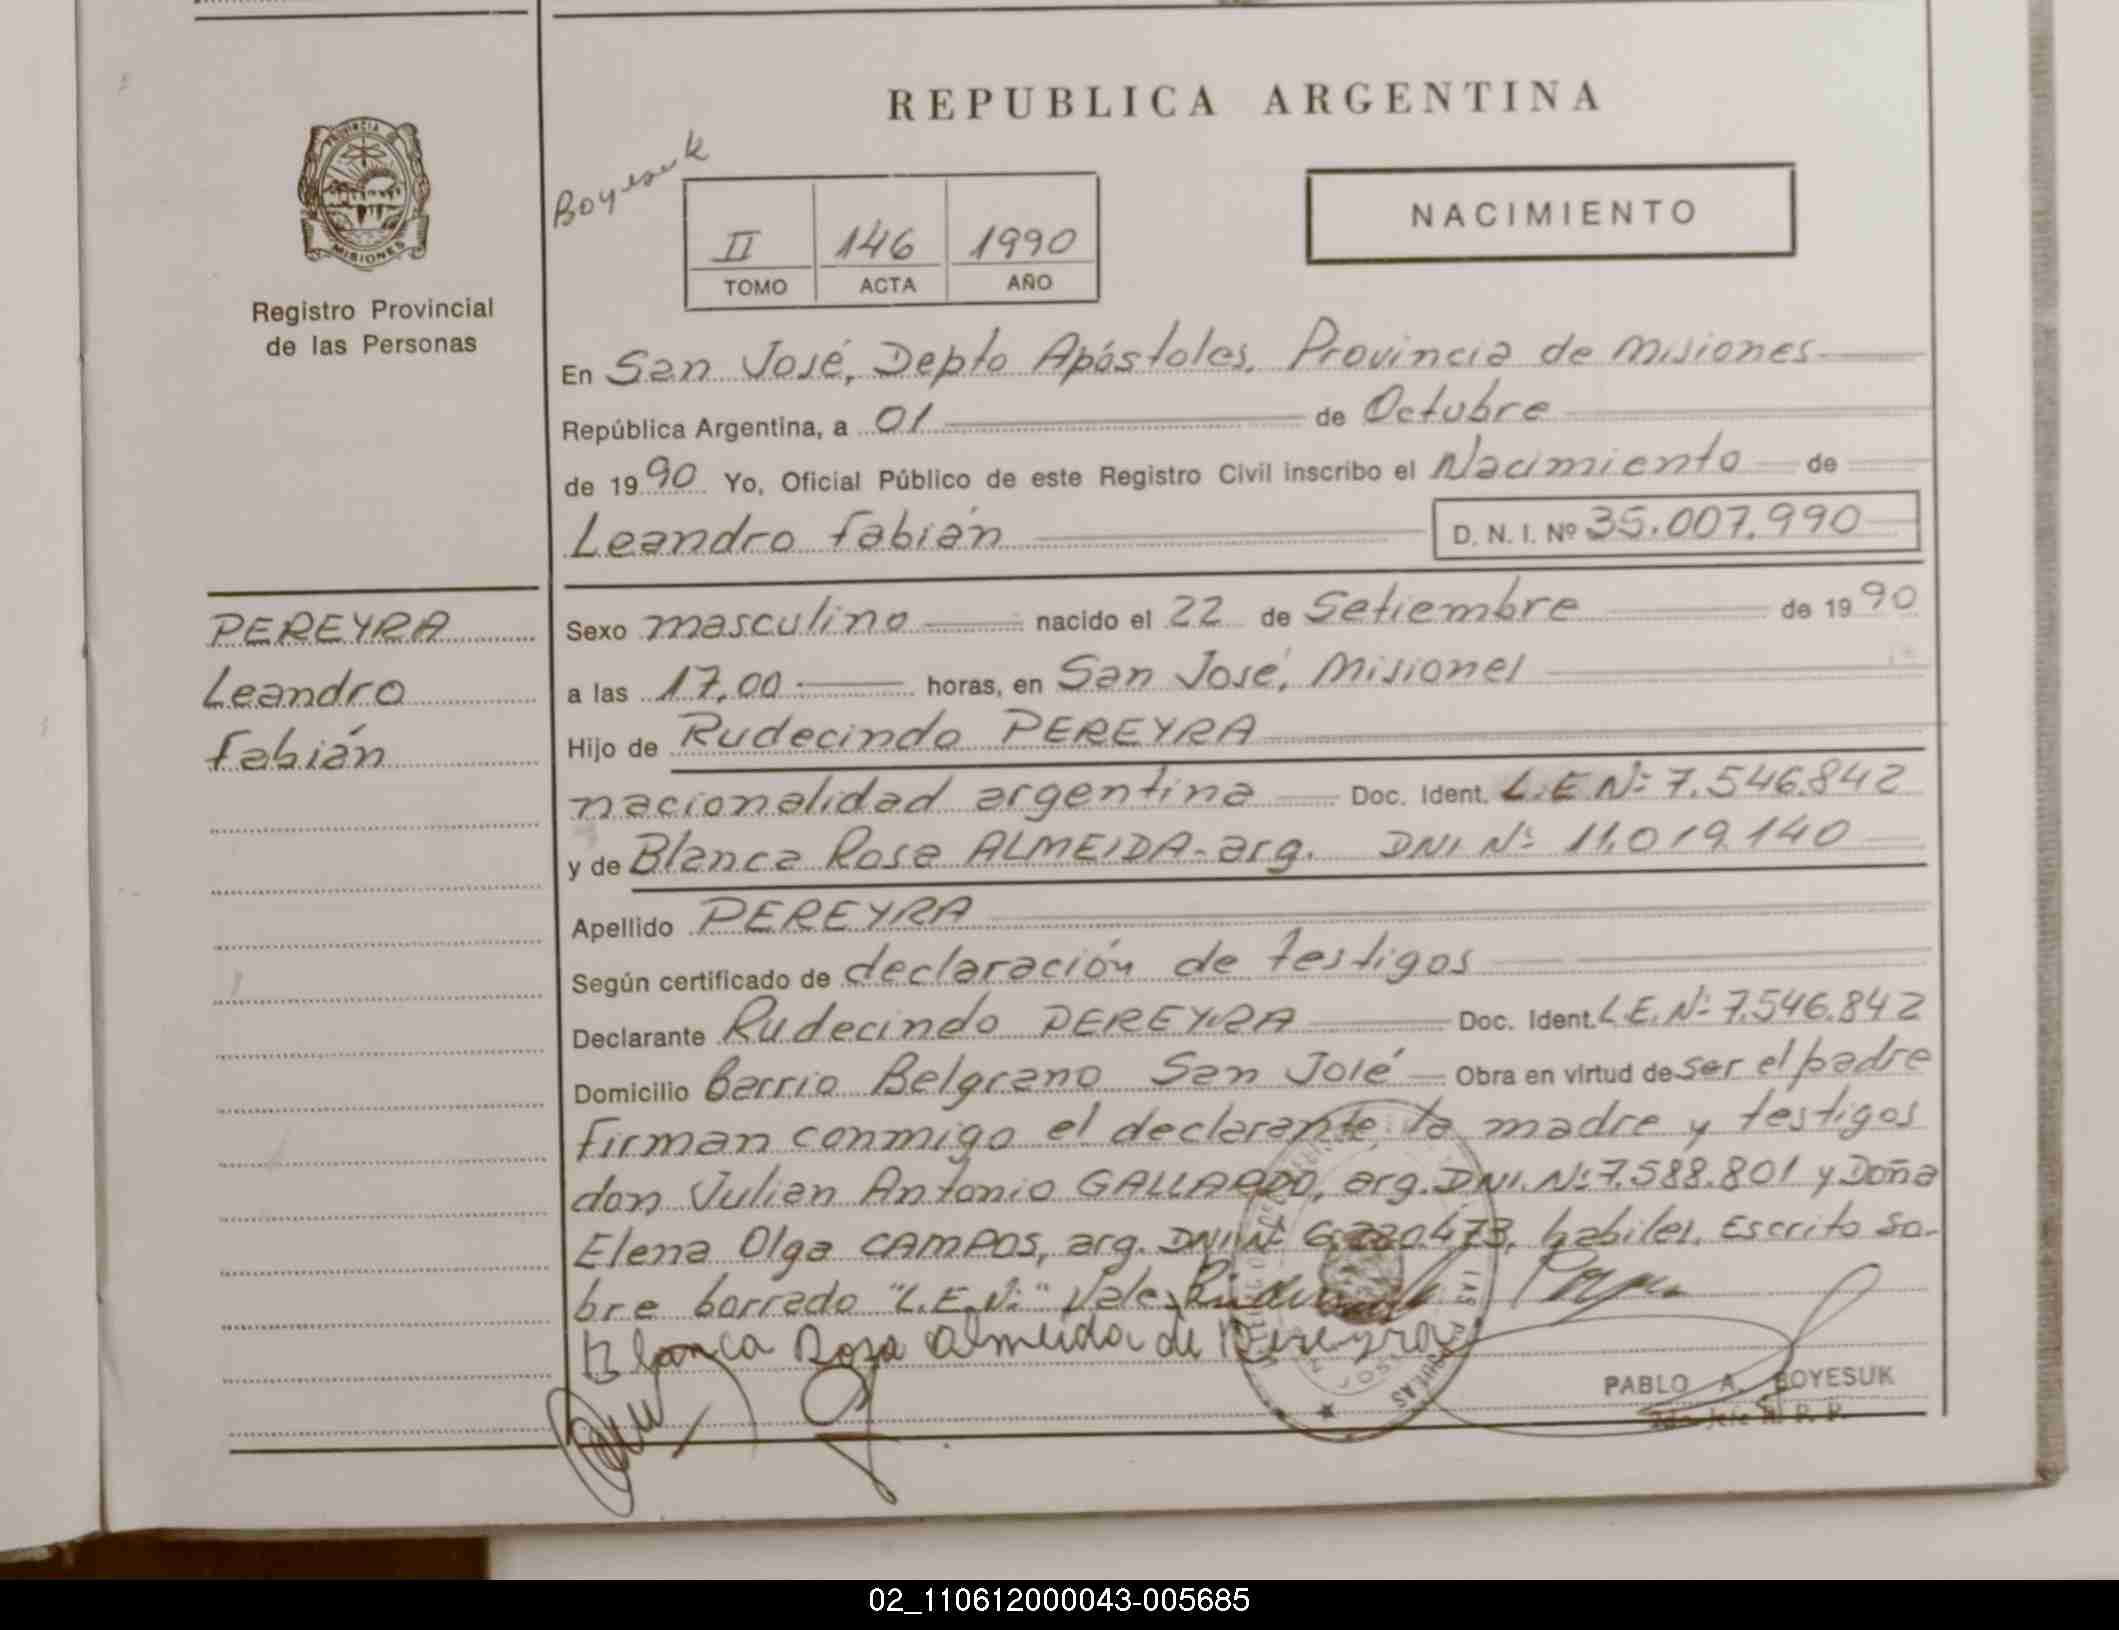 REPUBLICA ARGENTINA
PROVINCIA DE MISIONES
Registro Provincial
de las Personas
Boyesuk
II 146 1990
TOMO ACTA AÑO
NACIMIENTO
En San José, Depto Apóstoles, Provincia de Misiones
República Argentina, a 01 de Octubre
de 1990 Yo, Oficial Público de este Registro Civil inscribo el Nacimiento de
Leandro Fabián D. N. I. Nº 35.007.990
PEREYRA
Leandro
Fabián
Sexo masculino nacido el 22 de Setiembre de 1990
a las 17,00 horas, en San José, Misiones
Hijo de Rudecindo PEREYRA
nacionalidad argentina Doc. Ident. L.E.Nº 7.546.842
y de Blanca Rosa ALMEIDA-arg. DNI Nº 11.019.140
Apellido PEREYRA
Según certificado de declaración de testigos
Declarante Rudecindo PEREYRA Doc. Ident. L.E.Nº 7.546.842
Domicilio Barrio Belgrano San José Obra en virtud de ser el padre
Firman conmigo el declarante, la madre y testigos
don Julian Antonio GALLARDO, arg. DNI.Nº 7.588.801 y Doña
Elena Olga CAMPOS, arg. DNI Nº 473, habiles. Escrito so-
bre borrado "L.E.Nº" Vale
Blanca Rosa Almeida de Pereyra
PABLO A. BOYESUK
02_110612000043-005685